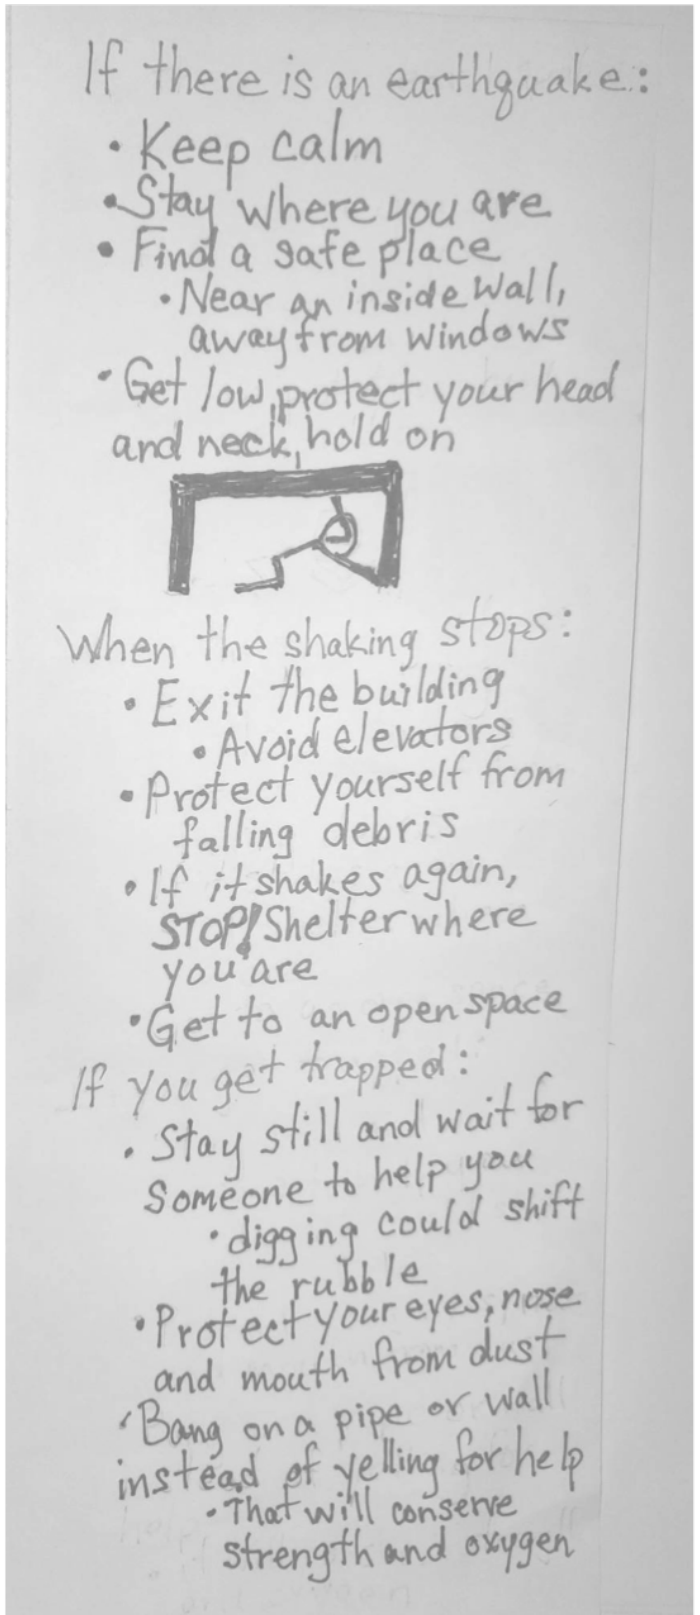 If there is an earthquake:
• Keep calm
• Stay where you are
• Find a safe place
• Near an inside wall,
away from windows
• Get low, protect your head
and neck, hold on
When the shaking stops:
• Exit the building
• Avoid elevators
• Protect yourself from
falling debris
• If it shakes again,
STOP! Shelter where
you are
• Get to an open space
If you get trapped:
• Stay still and wait for
someone to help you
• digging could shift
the rubble
• Protect your eyes, nose
and mouth from dust
• Bang on a pipe or wall
instead of yelling for help
• That will conserve
strength and oxygen